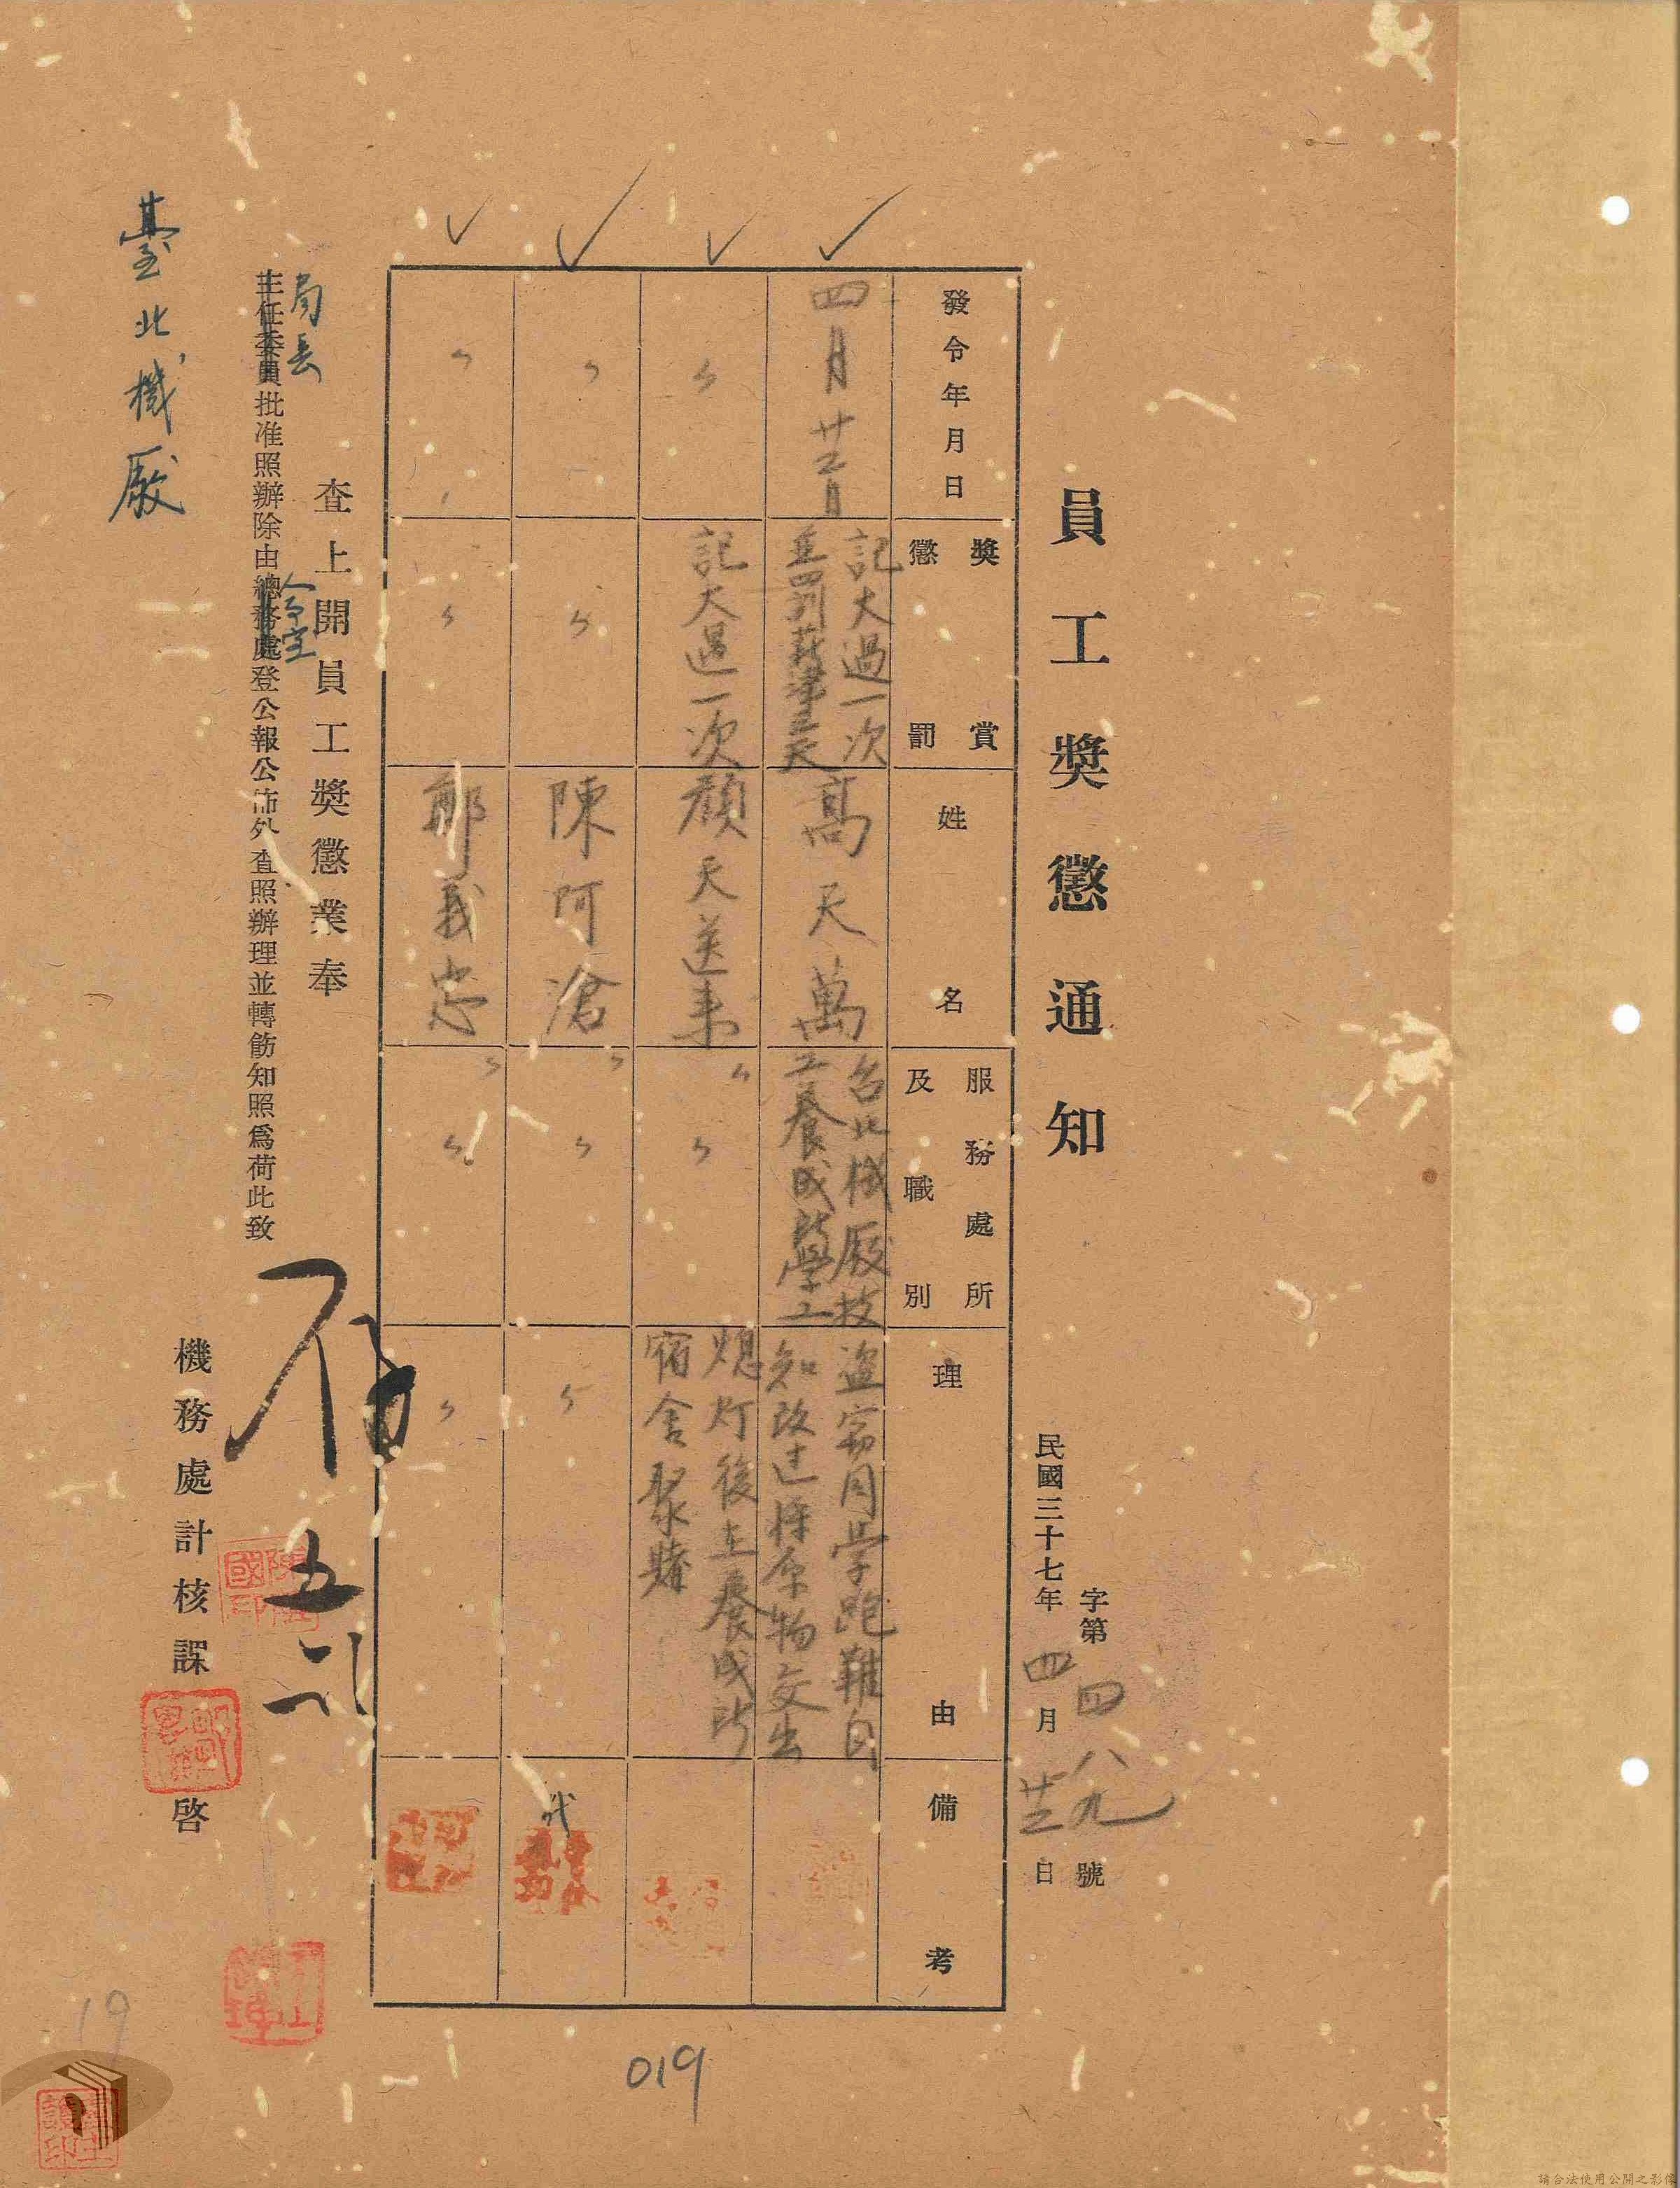 員工獎懲通知
字第四四八九號
民國三十七年四月廿三日
發令年月日
獎賞
懲罰
姓名
服務處所
及職別
理由
備考
四月廿三日
記大過一次
並罰薪津三天
高天萬
台北機厰技
工養成所學工
盜竊同学跑鞋自
知改过将原物交出
〃
記大過一次
顏天送来
〃
〃
熄灯後在養成所
宿舍聚賭
〃
〃
陳阿滄
〃
〃
〃
代
〃
〃
鄭義忠
〃
〃
〃
查上開員工獎懲業奉
局長
主任委員批准照辦除由總務處登公報公佈外查照辦理並轉飭知照為荷此致
人事室
臺北機厰
機務處計核課啓
019
19
請合法使用公開之影像